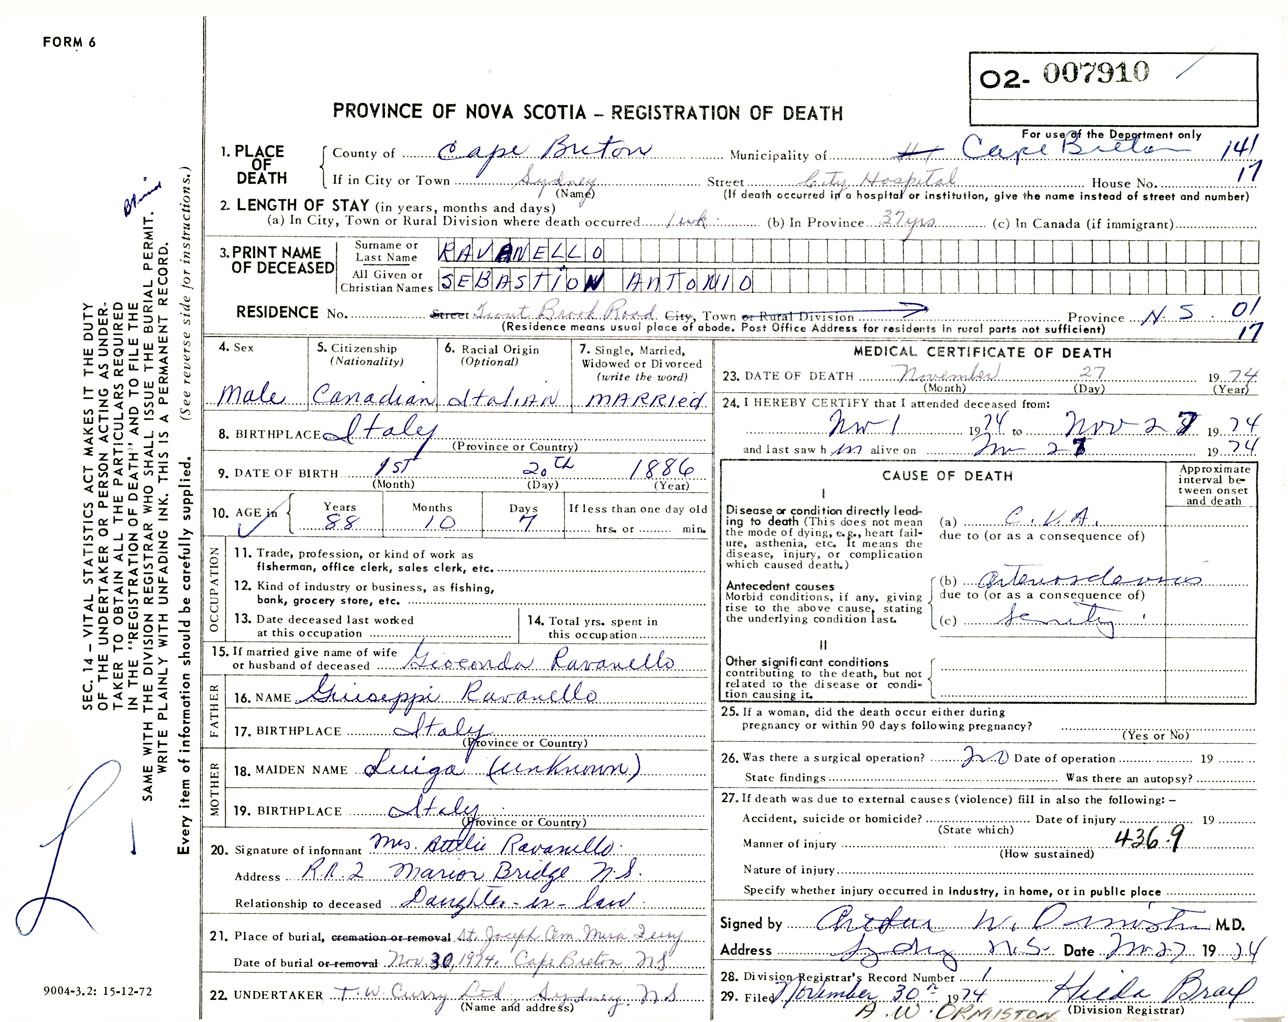 FORM 6
02- 007910
For use of the Department only
PROVINCE OF NOVA SCOTIA – REGISTRATION OF DEATH
1. PLACE OF DEATH
County of Cape Breton Municipality of Cape Breton 141
If in City or Town Sydney Street City Hospital House No. 17
(Name) (If death occurred in a hospital or institution, give the name instead of street and number)
2. LENGTH OF STAY (in years, months and days)
(a) In City, Town or Rural Division where death occurred 1 wk. (b) In Province 37 yrs (c) In Canada (if immigrant)
3. PRINT NAME OF DECEASED
Surname or Last Name RAVANELLO
All Given or Christian Names SEBASTION ANTONIO
RESIDENCE No. Street Trout Brook Road City, Town or Rural Division Province N.S. 01
(Residence means usual place of abode. Post Office Address for residents in rural parts not sufficient) 17
4. Sex
Male
5. Citizenship
(Nationality)
Canadian
6. Racial Origin
(Optional)
Italian
7. Single, Married,
Widowed or Divorced
(write the word)
MARRIED
8. BIRTHPLACE Italy
(Province or Country)
9. DATE OF BIRTH 1st 20th 1886
(Month) (Day) (Year)
10. AGE in
Years Months Days If less than one day old
88 10 7 hrs. or min.
OCCUPATION
11. Trade, profession, or kind of work as
fisherman, office clerk, sales clerk, etc.
12. Kind of industry or business, as fishing,
bank, grocery store, etc.
13. Date deceased last worked
at this occupation
14. Total yrs. spent in
this occupation
15. If married give name of wife
or husband of deceased Gioconda Ravanello
FATHER
16. NAME Giuseppi Ravanello
17. BIRTHPLACE Italy
(Province or Country)
MOTHER
18. MAIDEN NAME Luiga (unknown)
19. BIRTHPLACE Italy
(Province or Country)
20. Signature of informant Mrs. Ravanello
Address R.R.2 Marion Bridge N.S.
Relationship to deceased Daughter-in-law
21. Place of burial, cremation or removal St. Joseph Cem Mira Ferry
Date of burial or removal Nov. 30, 1974. Cape Breton NS
22. UNDERTAKER T.W. Curry Ltd. Sydney, NS
(Name and address)
MEDICAL CERTIFICATE OF DEATH
23. DATE OF DEATH November 27 1974
(Month) (Day) (Year)
24. I HEREBY CERTIFY that I attended deceased from:
Nov 1 1974 to Nov 27 1974
and last saw him alive on Nov 27 1974
CAUSE OF DEATH
Approximate
interval be-
tween onset
and death
I
Disease or condition directly lead-
ing to death (This does not mean
the mode of dying, e.g., heart fail-
ure, asthenia, etc. It means the
disease, injury, or complication
which caused death.)
(a) C.V.A.
due to (or as a consequence of)
Antecedent causes
Morbid conditions, if any, giving
rise to the above cause, stating
the underlying condition last.
(b)
due to (or as a consequence of)
(c) Senility
II
Other significant conditions
contributing to the death, but not
related to the disease or condi-
tion causing it.
25. If a woman, did the death occur either during
pregnancy or within 90 days following pregnancy?
(Yes or No)
26. Was there a surgical operation? no Date of operation 19
State findings Was there an autopsy?
27. If death was due to external causes (violence) fill in also the following: –
Accident, suicide or homicide? Date of injury 19
(State which)
Manner of injury 436.9
(How sustained)
Nature of injury
Specify whether injury occurred in industry, in home, or in public place
Signed by Arthur W. Ormiston M.D.
Address Sydney N.S. Date Nov 27 1974
28. Division Registrar's Record Number 1
29. Filed November 30th 1974 Hilda Bray
A.W. ORMISTON (Division Registrar)
SEC. 14 – VITAL STATISTICS ACT MAKES IT THE DUTY
OF THE UNDERTAKER OR PERSON ACTING AS UNDER-
TAKER TO OBTAIN ALL THE PARTICULARS REQUIRED
IN THE "REGISTRATION OF DEATH" AND TO FILE THE
SAME WITH THE DIVISION REGISTRAR WHO SHALL ISSUE THE BURIAL PERMIT.
WRITE PLAINLY WITH UNFADING INK. THIS IS A PERMANENT RECORD.
Every item of information should be carefully supplied. (See reverse side for instructions.)
9004-3.2: 15-12-72